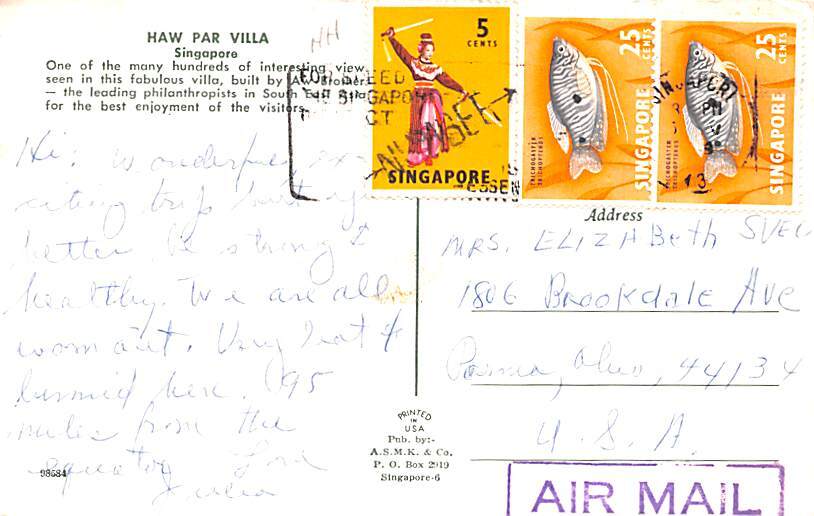 HAW PAR VILLA
Singapore
One of the many hundreds of interesting view,
seen in this fabulous villa, built by Aw Brothers
— the leading philanthropists in South East Asia
for the best enjoyment of the visitors.
HH
5
CENTS
SINGAPORE
25
CENTS
SINGAPORE
TRICHOGASTER
TRICHOPTERUS
25
CENTS
SINGAPORE
TRICHOGASTER
TRICHOPTERUS
Hi! Wonderful, ex-
citing trip but
better be strong &
healthy. We are all
worn out. Very hot &
humid here. 95
miles from the
equator Love
Address
MRS. ELIZABeth
1806 Brookdale Ave
Parma, Ohio, 44134
U. S. A.
PRINTED
IN
USA
Pub. by:-
A.S.M.K. & Co.
P. O. Box 2919
Singapore-6
98584
AIR MAIL